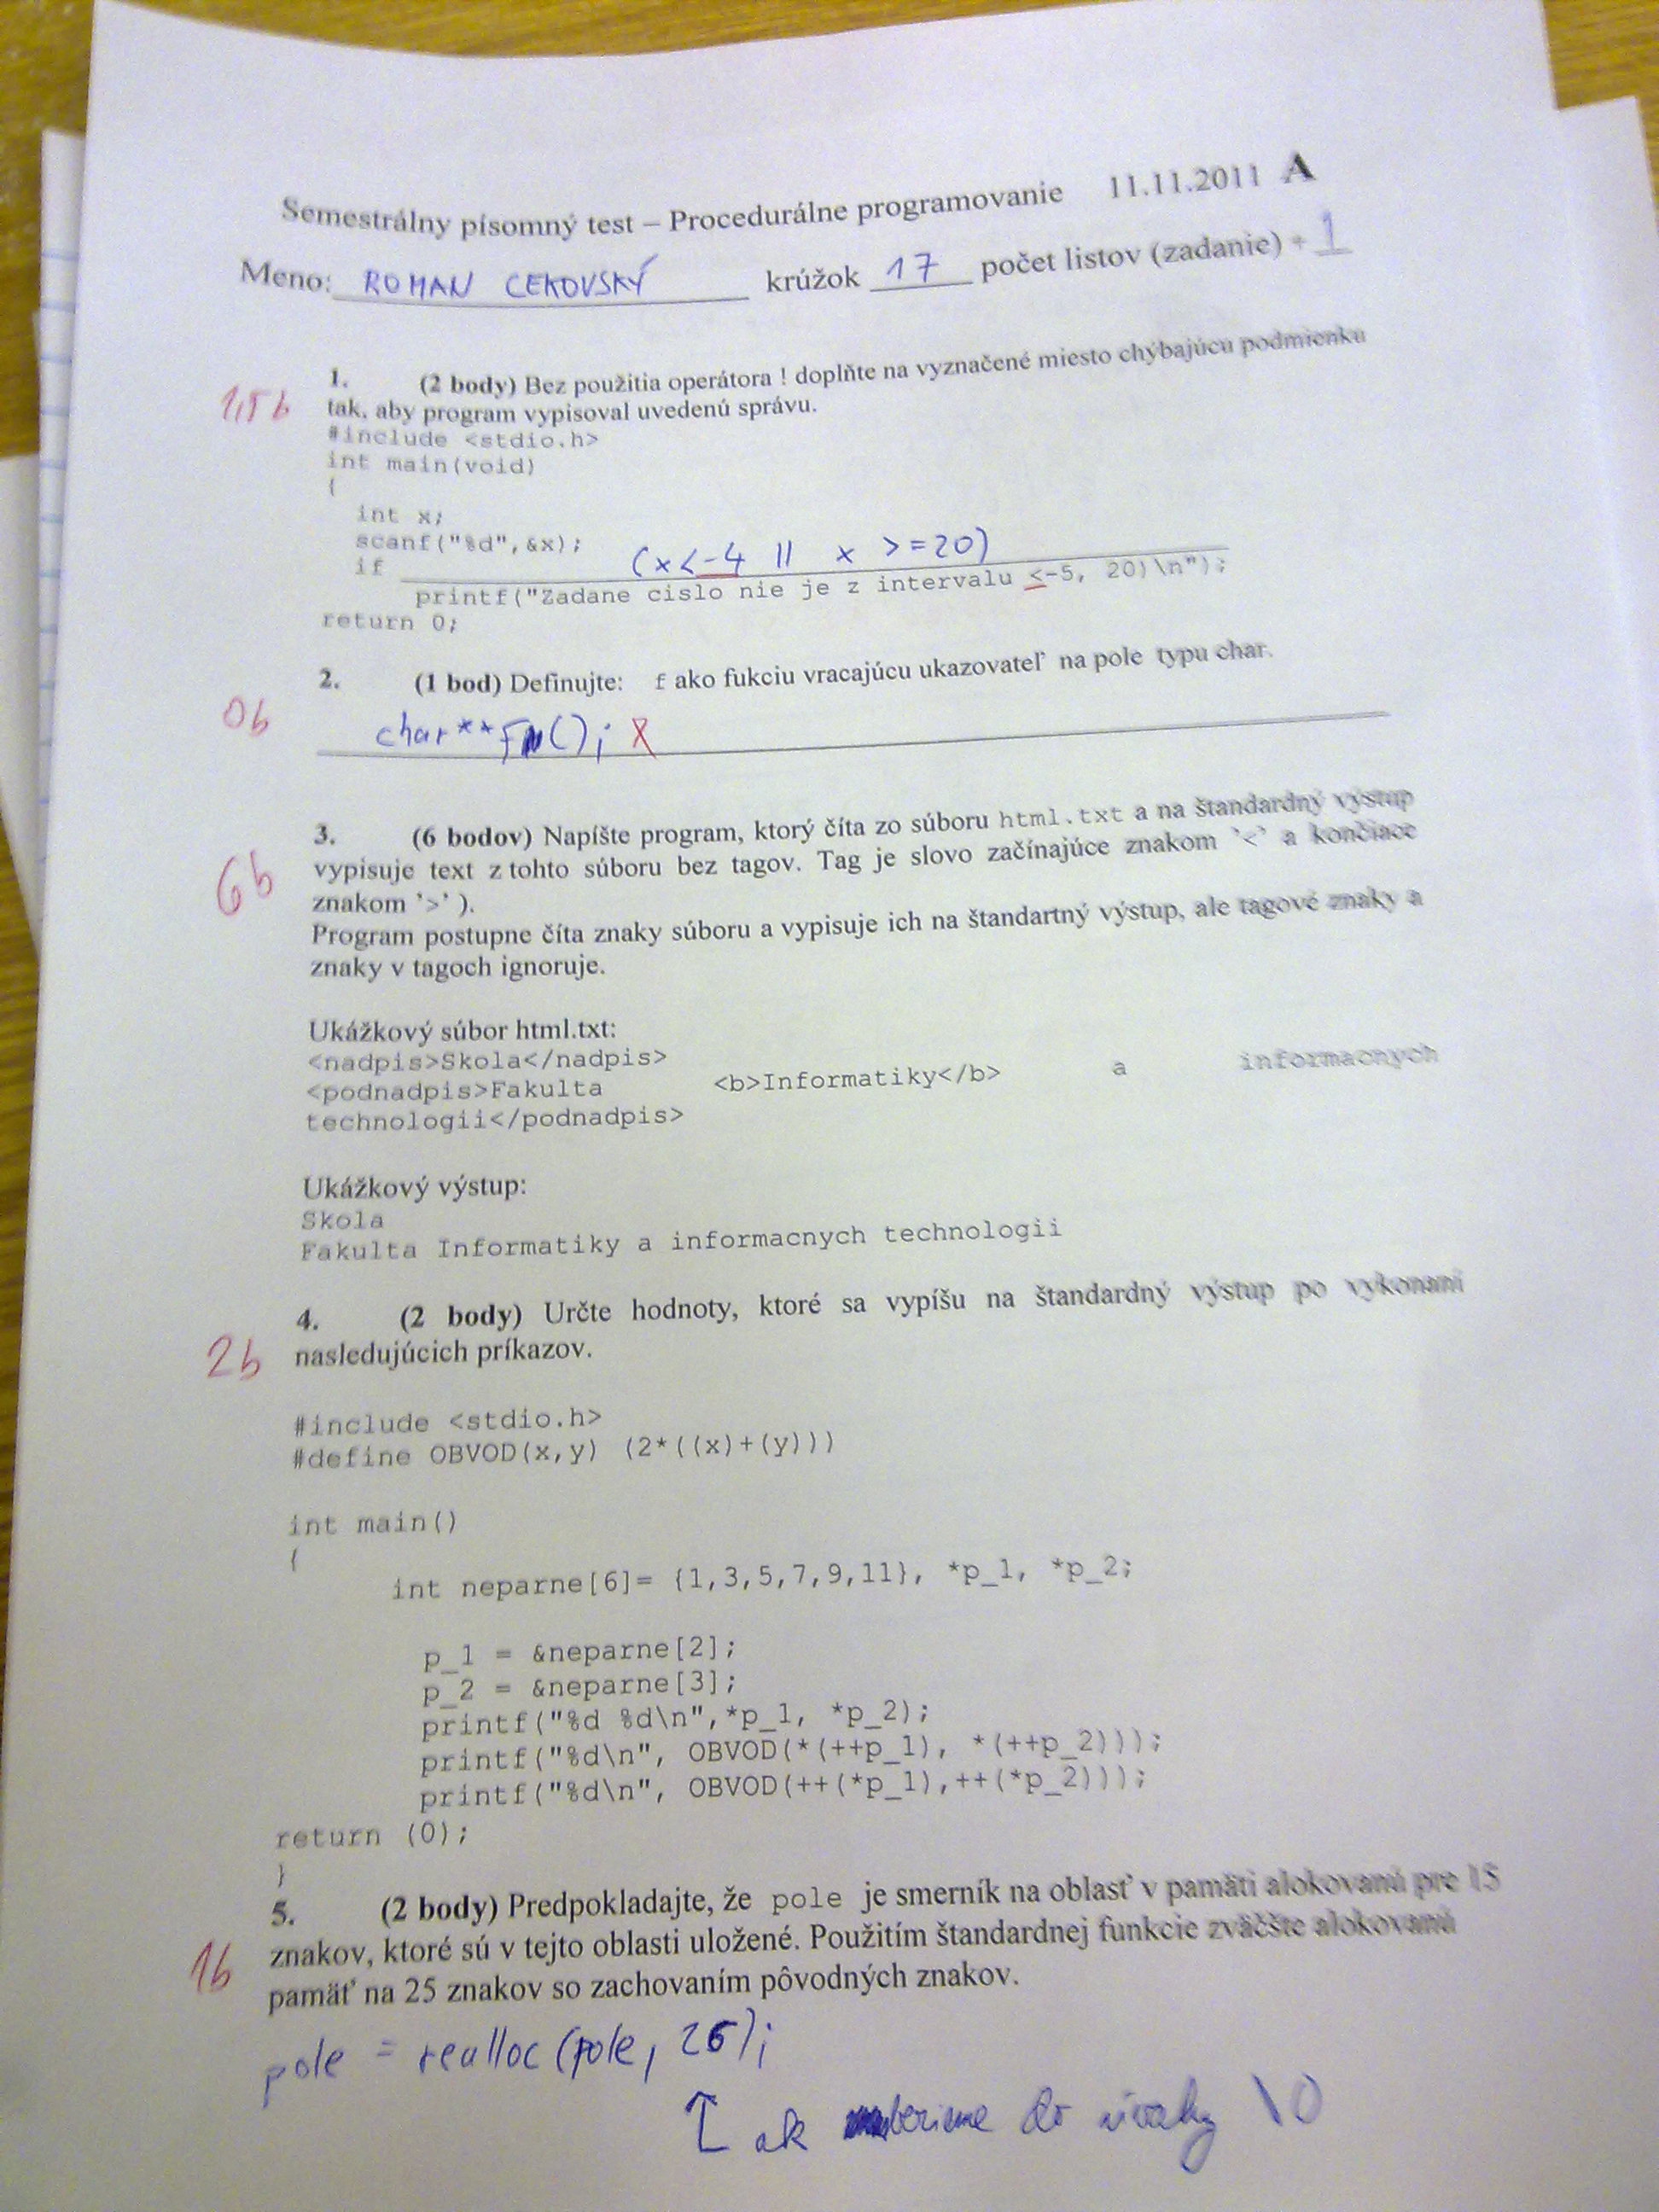 Semestrálny písomný test – Procedurálne programovanie 11.11.2011 A
Meno: ROMAN CEKOVSKÝ krúžok 17 počet listov (zadanie) + 1
1,5 b
1. (2 body) Bez použitia operátora ! doplňte na vyznačené miesto chýbajúcu podmienku
tak, aby program vypisoval uvedenú správu.
#include <stdio.h>
int main(void)
{
int x;
scanf("%d",&x);
if (x<-4 || x >=20)
printf("Zadane cislo nie je z intervalu <-5, 20)\n");
return 0;
2. (1 bod) Definujte: f ako fukciu vracajúcu ukazovateľ na pole typu char.
0b
char** f();
3. (6 bodov) Napíšte program, ktorý číta zo súboru html.txt a na štandardný výstup
6b
vypisuje text z tohto súboru bez tagov. Tag je slovo začínajúce znakom '<' a končiace
znakom '>' ).
Program postupne číta znaky súboru a vypisuje ich na štandartný výstup, ale tagové znaky a
znaky v tagoch ignoruje.
Ukážkový súbor html.txt:
<nadpis>Skola</nadpis>
<podnadpis>Fakulta <b>Informatiky</b> a informacnych
technologii</podnadpis>
Ukážkový výstup:
Skola
Fakulta Informatiky a informacnych technologii
4. (2 body) Určte hodnoty, ktoré sa vypíšu na štandardný výstup po vykonaní
2b
nasledujúcich príkazov.
#include <stdio.h>
#define OBVOD(x,y) (2*((x)+(y)))
int main()
{
int neparne[6]= {1,3,5,7,9,11}, *p_1, *p_2;
p_1 = &neparne[2];
p_2 = &neparne[3];
printf("%d %d\n",*p_1, *p_2);
printf("%d\n", OBVOD(*(++p_1), *(++p_2)));
printf("%d\n", OBVOD(++(*p_1),++(*p_2)));
return (0);
}
5. (2 body) Predpokladajte, že pole je smerník na oblasť v pamäti alokovanú pre 15
znakov, ktoré sú v tejto oblasti uložené. Použitím štandardnej funkcie zväčšte alokovanú
1b
pamäť na 25 znakov so zachovaním pôvodných znakov.
pole = realloc(pole, 26);
↑ ak berieme do úvahy \0